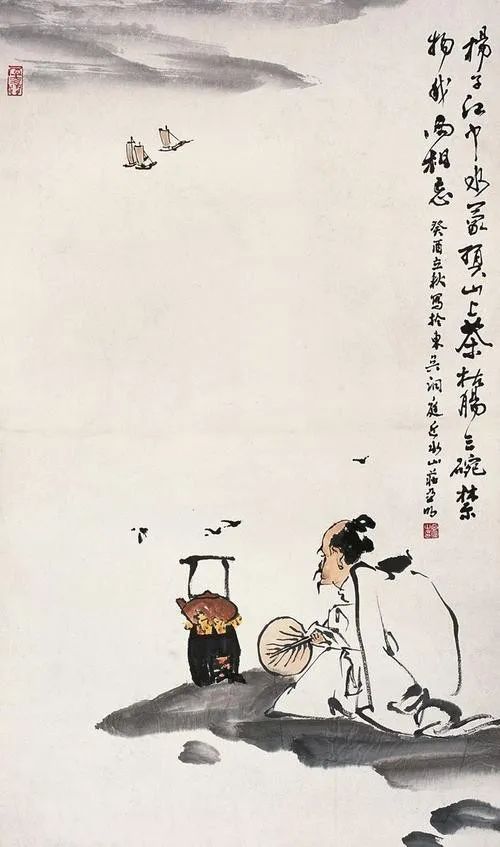 楊子江中水蒙頂山上茶枯腸三碗禁
物我兩相忘 癸酉立秋寫於東吳洞庭近水山莊亞明